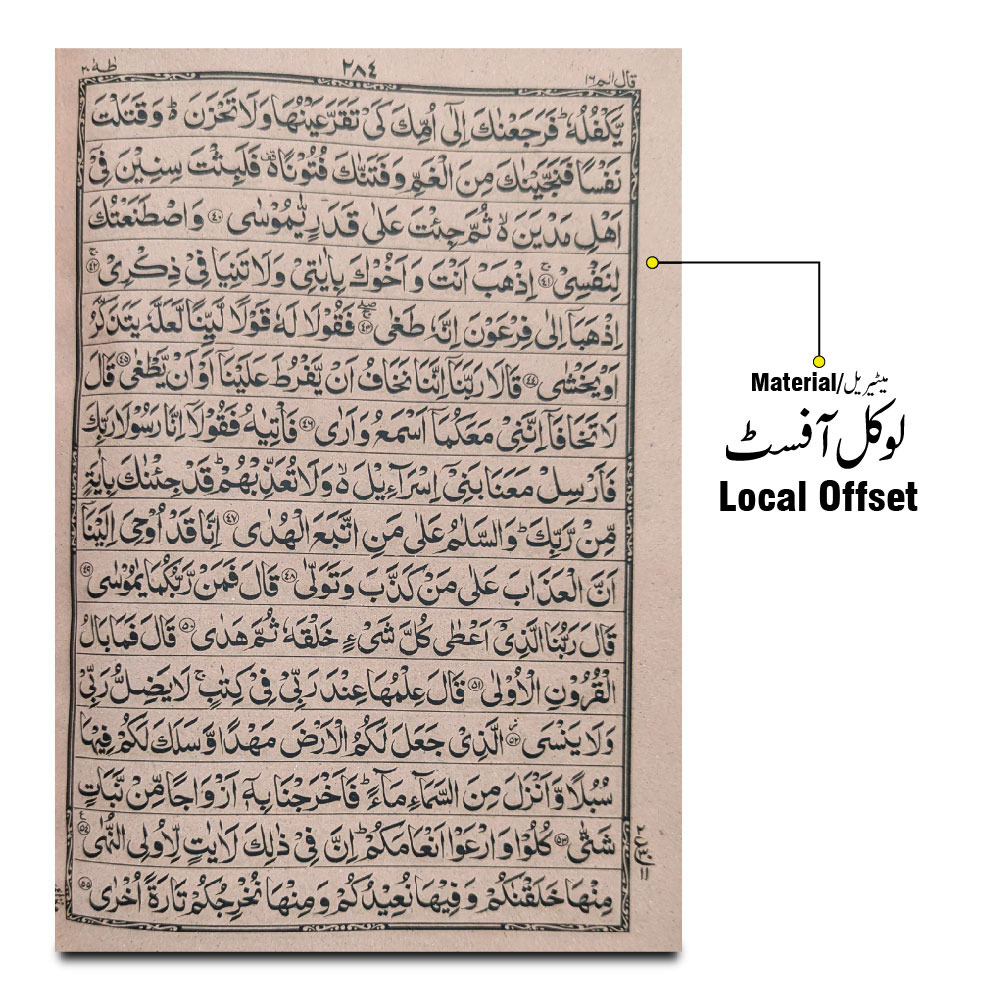 قال الم ١٦
٢٨٤
طٰهٰ ٢٠
يَّكْفُلُهٗ ؕ فَرَجَعْنٰكَ اِلٰۤى اُمِّكَ كَىْ تَقَرَّ عَيْنُهَا وَلَا تَحْزَنَ ۬ؕ وَقَتَلْتَ
نَفْسًا فَنَجَّيْنٰكَ مِنَ الْغَمِّ وَفَتَنّٰكَ فُتُوْنًا ۬۫ فَلَبِثْتَ سِنِيْنَ فِىْۤ
اَهْلِ مَدْيَنَ ۙ۬ ثُمَّ جِئْتَ عَلٰى قَدَرٍ يّٰمُوْسٰى ﴿۴۰﴾ وَاصْطَنَعْتُكَ
لِنَفْسِىْ ۚ﴿۴۱﴾ اِذْهَبْ اَنْتَ وَاَخُوْكَ بِاٰيٰتِىْ وَلَا تَنِيَا فِىْ ذِكْرِىْ ۚ﴿۴۲﴾
اِذْهَبَاۤ اِلٰى فِرْعَوْنَ اِنَّهٗ طَغٰى ۚ ۖ﴿۴۳﴾ فَقُوْلَا لَهٗ قَوْلًا لَّيِّنًا لَّعَلَّهٗ يَتَذَكَّرُ
اَوْ يَخْشٰى ﴿۴۴﴾ قَالَا رَبَّنَاۤ اِنَّنَا نَخَافُ اَنْ يَّفْرُطَ عَلَيْنَاۤ اَوْ اَنْ يَّطْغٰى ﴿۴۵﴾ قَالَ
لَا تَخَافَاۤ اِنَّنِىْ مَعَكُمَاۤ اَسْمَعُ وَاَرٰى ﴿۴۶﴾ فَاْتِيٰهُ فَقُوْلَاۤ اِنَّا رَسُوْلَا رَبِّكَ
فَاَرْسِلْ مَعَنَا بَنِىْۤ اِسْرَآءِيْلَ ۙ۬ وَلَا تُعَذِّبْهُمْ ؕ قَدْ جِئْنٰكَ بِاٰيَةٍ
مِّنْ رَّبِّكَ ؕ وَالسَّلٰمُ عَلٰى مَنِ اتَّبَعَ الْهُدٰى ﴿۴۷﴾ اِنَّا قَدْ اُوْحِىَ اِلَيْنَاۤ
اَنَّ الْعَذَابَ عَلٰى مَنْ كَذَّبَ وَتَوَلّٰى ﴿۴۸﴾ قَالَ فَمَنْ رَّبُّكُمَا يٰمُوْسٰى ﴿۴۹﴾
قَالَ رَبُّنَا الَّذِىْۤ اَعْطٰى كُلَّ شَىْءٍ خَلْقَهٗ ثُمَّ هَدٰى ﴿۵۰﴾ قَالَ فَمَا بَالُ
الْقُرُوْنِ الْاُوْلٰى ﴿۵۱﴾ قَالَ عِلْمُهَا عِنْدَ رَبِّىْ فِىْ كِتٰبٍ ۚ لَا يَضِلُّ رَبِّىْ
وَلَا يَنْسَى ۫﴿۵۲﴾ الَّذِىْ جَعَلَ لَكُمُ الْاَرْضَ مَهْدًا وَّسَلَكَ لَكُمْ فِيْهَا
سُبُلًا وَّاَنْزَلَ مِنَ السَّمَآءِ مَآءً ؕ فَاَخْرَجْنَا بِهٖۤ اَزْوَاجًا مِّنْ نَّبَاتٍ
شَتّٰى ﴿۵۳﴾ كُلُوْا وَارْعَوْا اَنْعَامَكُمْ ؕ اِنَّ فِىْ ذٰلِكَ لَاٰيٰتٍ لِّاُولِى النُّهٰى ﴿۵۴﴾
مِنْهَا خَلَقْنٰكُمْ وَفِيْهَا نُعِيْدُكُمْ وَمِنْهَا نُخْرِجُكُمْ تَارَةً اُخْرٰى ﴿۵۵﴾
Material/میٹیریل
لوکل آفسٹ
Local Offset